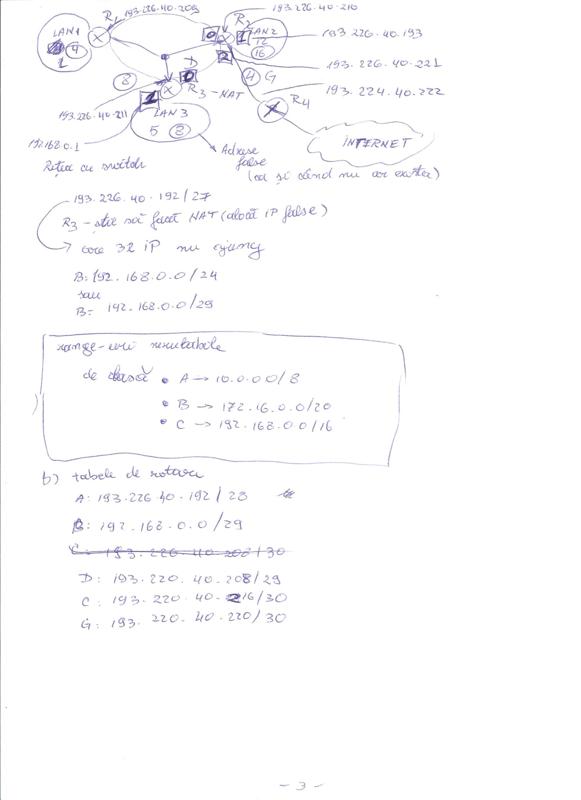 R1
193.226.40.209
193.226.40.210
R2
LAN1
4
1
0
1
LAN2
12
16
193.226.40.193
2
193.226.40.221
D
0
8
R3-NAT
4
G
193.224.40.222
R4
193.226.40.211
1
LAN3
5
8
INTERNET
192.168.0.1
Adrese
false
(ca și când nu ar exista)
Rețea cu switch
193.226.40.192/27
R3 - știe să facă NAT (alocă IP false)
32 IP nu ajung
B: 192.168.0.0/24
sau
B= 192.168.0.0/29
range-uri nerutabile
de clasă • A → 10.0.0.0/8
• B → 172.16.0.0/20
• C → 192.168.0.0/16
b) tabele de rotare
A: 193.226.40.192/28
B: 192.168.0.0/29
C: 193.226.40.208/30
D: 193.220.40.208/29
C: 193.220.40.216/30
G: 193.220.40.220/30
- 3 -